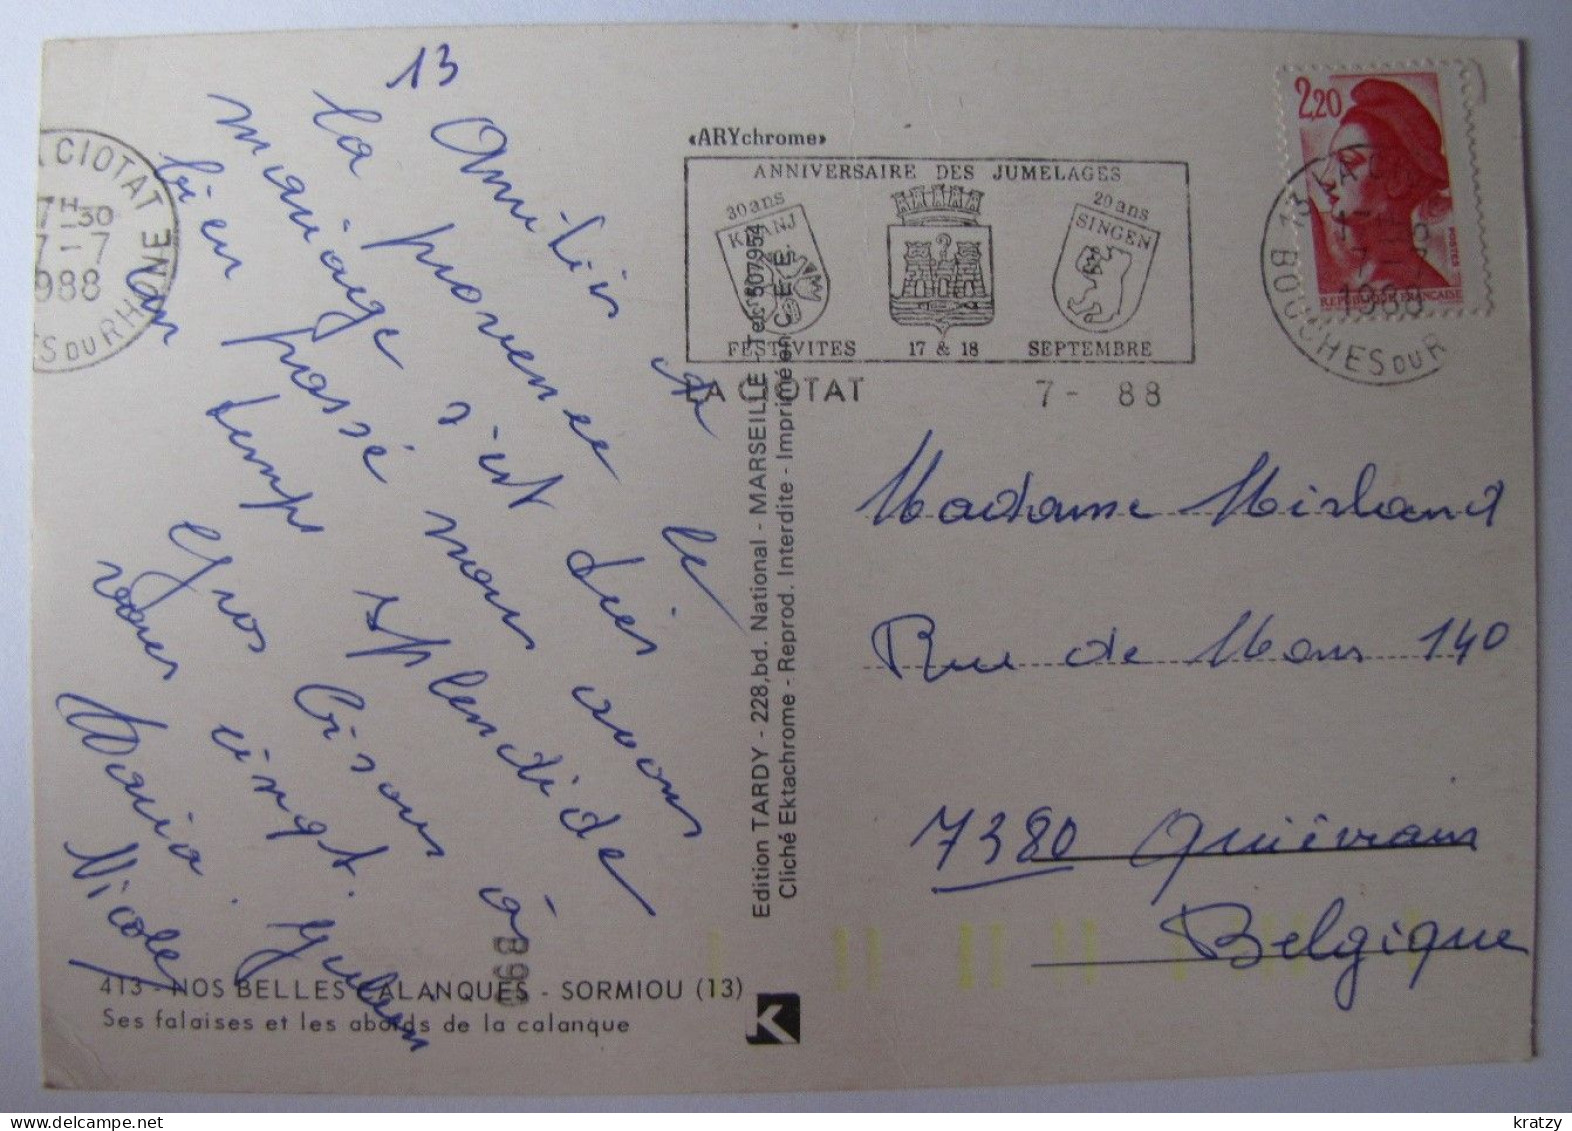 13
Amitiés de
la provence le
mariage s'est
bien passé nous
un temps splendide
Gros bisous à
vous cinq.
Maria
Nicole
«ARYchrome»
ANNIVERSAIRE DES JUMELAGES
30 ans
KRANJ
20 ans
SINGEN
FESTIVITES 17 & 18 SEPTEMBRE
LA CIOTAT 7 - 88
LA CIOTAT
17H30
7-7
1988
BOUCHES DU RHONE
2,20
POSTES
REPUBLIQUE FRANCAISE
13 LA CIOTAT
1988
BOUCHES DU R
Edition TARDY - 228, bd. National - MARSEILLE - Tel. 50 79 54
Cliché Ektachrome - Reprod. Interdite - Imprimé en C.E.E.
Madame Mirland
Rue de Mons 140
7380 Quiévrain
Belgique
413 - NOS BELLES CALANQUES - SORMIOU (13)
Ses falaises et les abords de la calanque
K
kratzy
delcampe.net